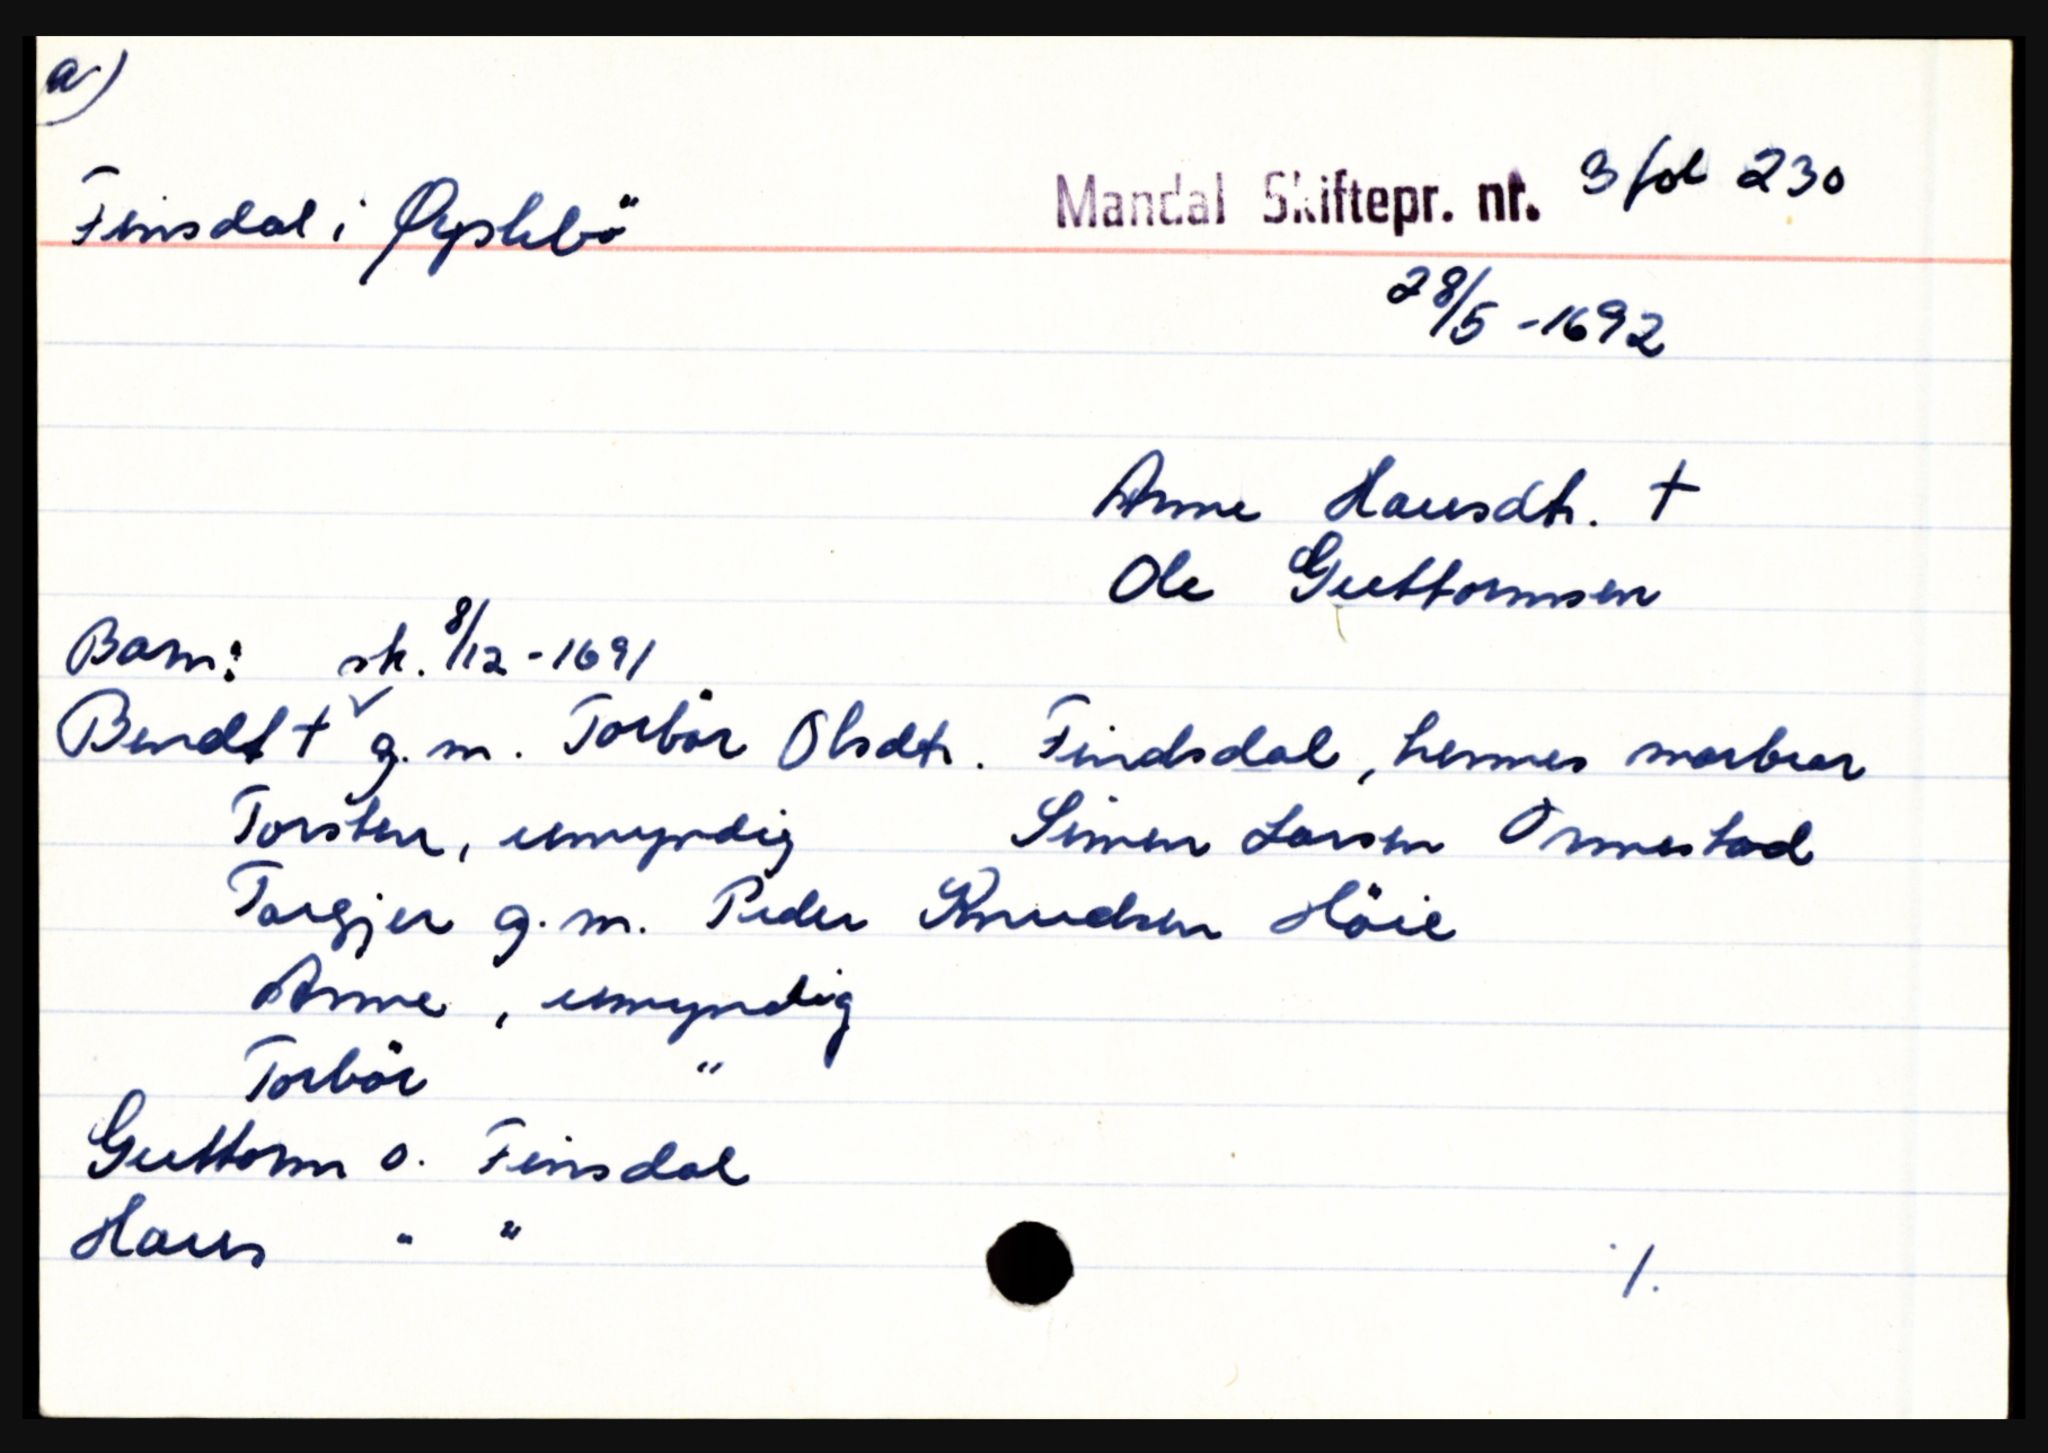 a)
Finsdal i Øyslebö
Mandal Skiftepr. nr. 3 fol 230
28/5 - 1692
Anne Hansdtr. †
Ole Guttormsen
Barn: sk. 8/12 - 1691
Bendt † g. m. Torbör Olsdtr. Findsdal, hennes morbror
Torsten, umyndig Simen Larsen Ormestad
Torgjer g. m. Peder Knudsen Höie
Anne, umyndig
Torbör "
Guttorm O. Finsdal
Hans " "
1.